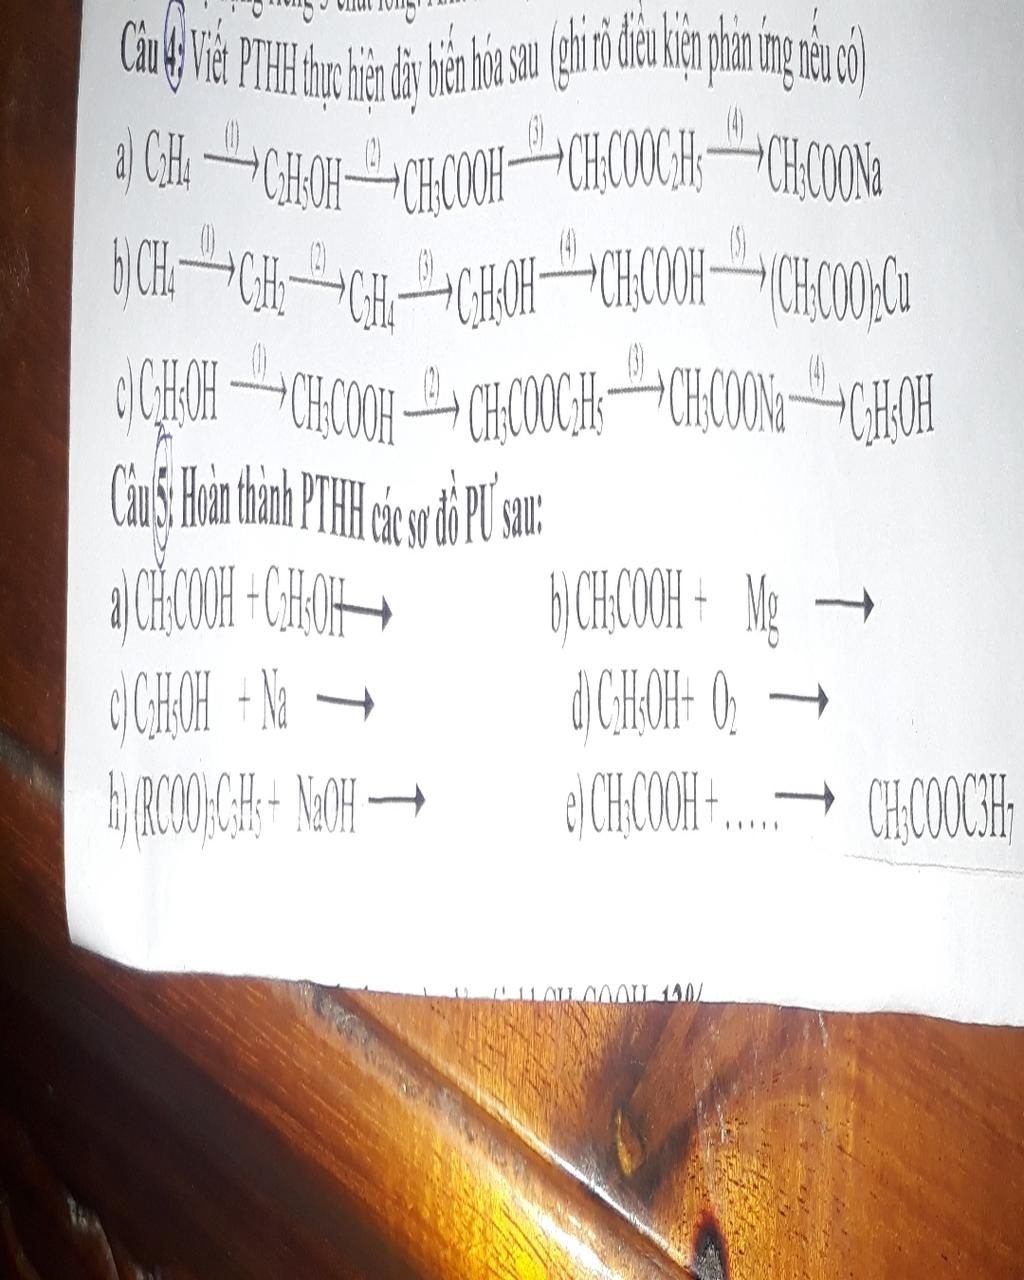 Câu 4: Viết PTHH thực hiện dãy biến hóa sau (ghi rõ điều kiện phản ứng nếu có)
a) C₂H₄ —(1)→ C₂H₅OH —(2)→ CH₃COOH —(3)→ CH₃COOC₂H₅ —(4)→ CH₃COONa
b) CH₄ —(1)→ C₂H₂ —(2)→ C₂H₄ —(3)→ C₂H₅OH —(4)→ CH₃COOH —(5)→ (CH₃COO)₂Cu
c) C₂H₅OH —(1)→ CH₃COOH —(2)→ CH₃COOC₂H₅ —(3)→ CH₃COONa —(4)→ C₂H₅OH
Câu 5: Hoàn thành PTHH các sơ đồ PƯ sau:
a) CH₃COOH + C₂H₅OH → b) CH₃COOH + Mg →
c) C₂H₅OH + Na → d) C₂H₅OH + O₂ →
h) (RCOO)₃C₃H₅ + NaOH → e) CH₃COOH + ..... → CH₃COOC3H₇